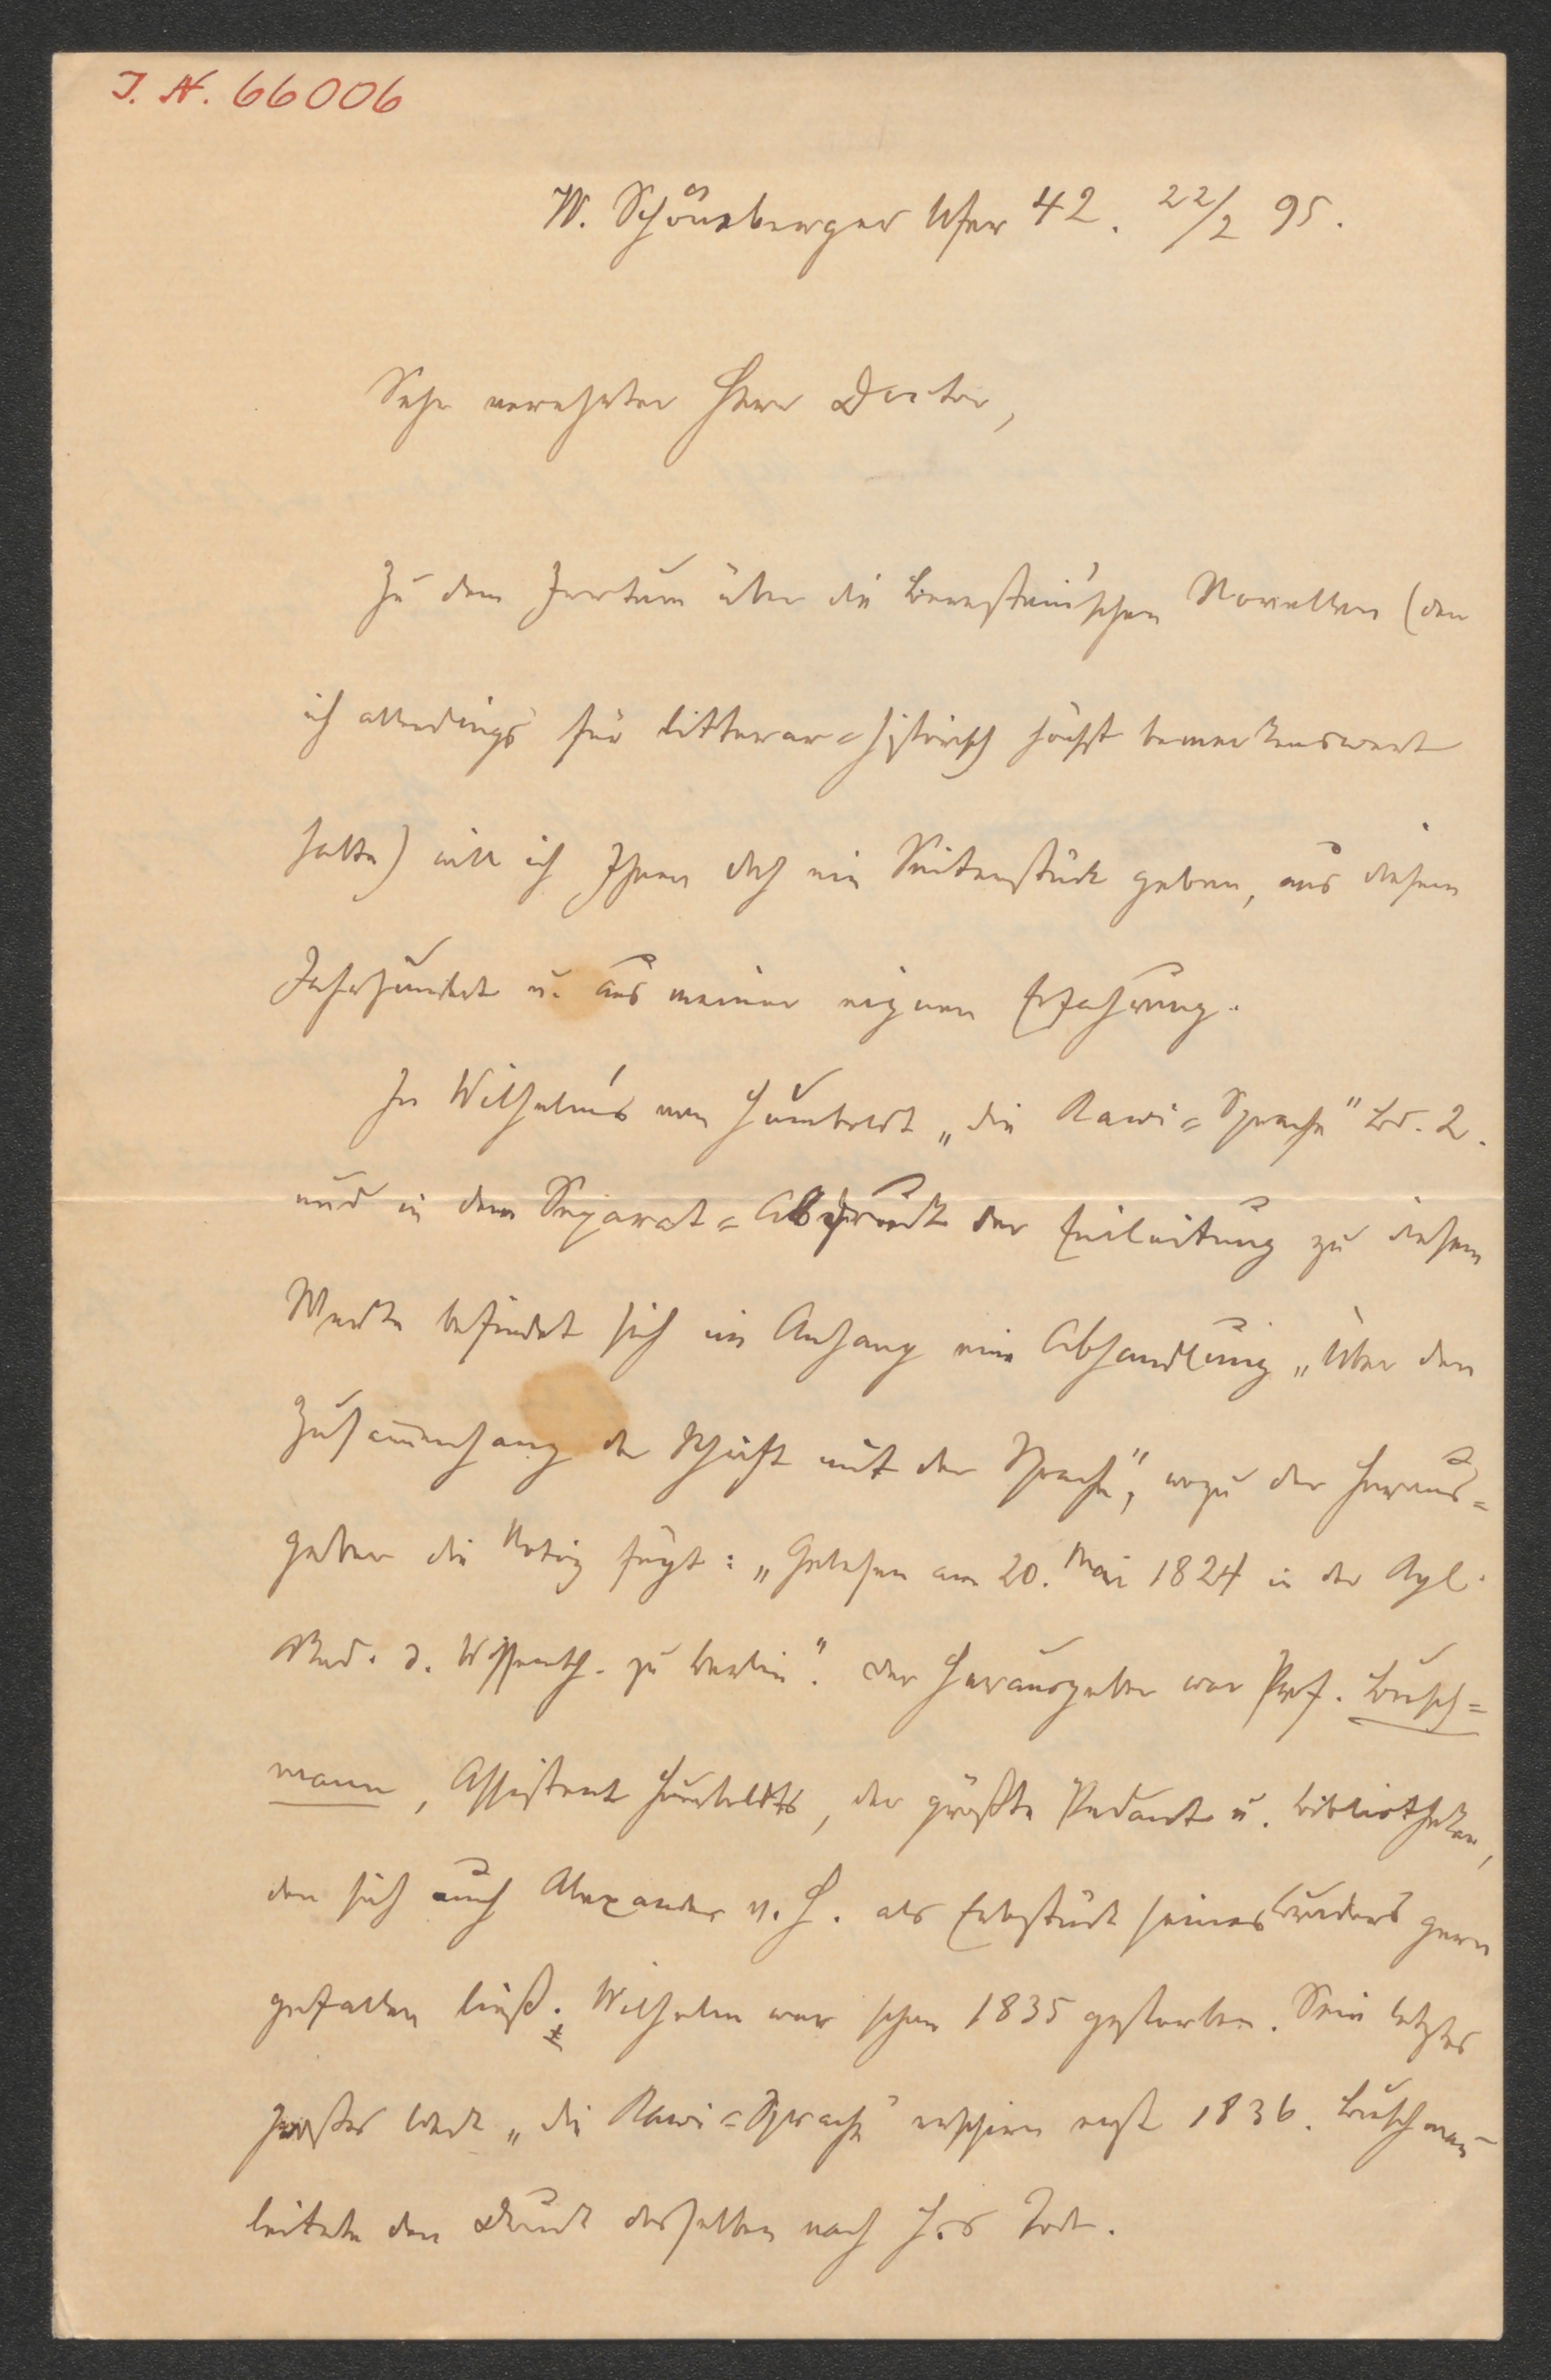 J. N. 66006
W. Schöneberger Ufer 42. 22/2 95.
Sehr verehrter Herr Doctor,
Zu dem Irrtum über die Bernstein'schen Novellen (den
ich allerdings für litterar-historisch höchst bemerkenswert
halte) will ich Ihnen doch ein Seitenstück geben, aus diesem
Jahrhundert u. aus meiner eignen Erfahrung.
In Wilhelm's von Humboldt „die Kawi-Sprache" Bd. 2.
und in dem Separat-Abdruck der Einleitung zu diesem
Werke befindet sich im Anhang eine Abhandlung „Über den
Zusammenhang der Schrift mit der Sprache", wozu der Heraus-
geber die Notiz fügt: „Gelesen am 20. Mai 1824 in der Kgl.
Akad. d. Wissensch. zu Berlin". Der Herausgeber war Prof. Busch-
mann, Assistent Humboldts, der größte Pedant u. Bibliothekar,
den sich auch Alexander v. H. als Erbstück seines Bruders gern
gefallen ließ. Wilhelm war schon 1835 gestorben. Sein letztes
großes Werk „die Kawi-Sprache" erschien erst 1836. Buschmann
leitete den Druck desselben nach H.s Tode.